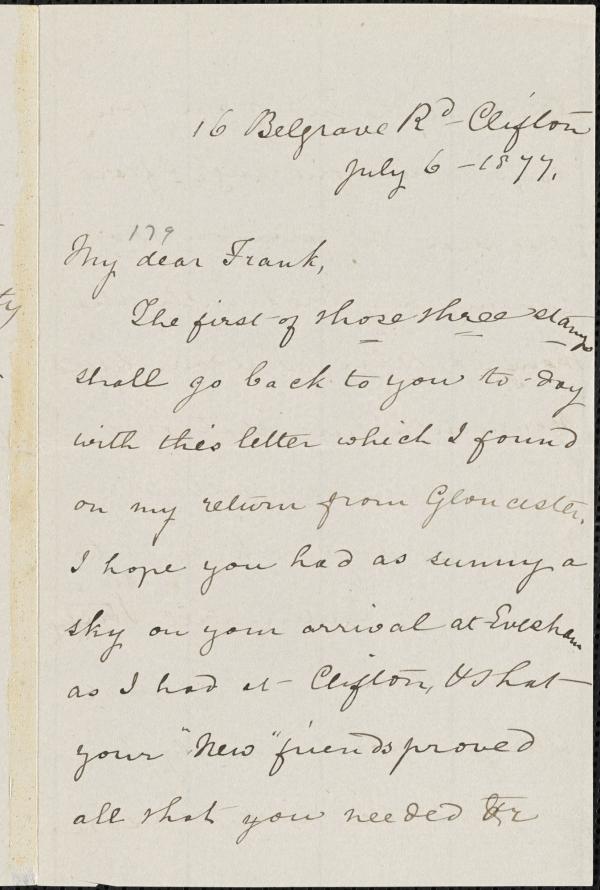 16 Belgrave Rd - Clifton
July 6 - 1877.
179
My dear Frank,
The first of those three stamps
shall go back to you to-day
with this letter which I found
on my return from Gloucester.
I hope you had as sunny a
sky on your arrival at Evesham
as I had at Clifton, & that
your "New" friends proved
all that you needed &c
ty